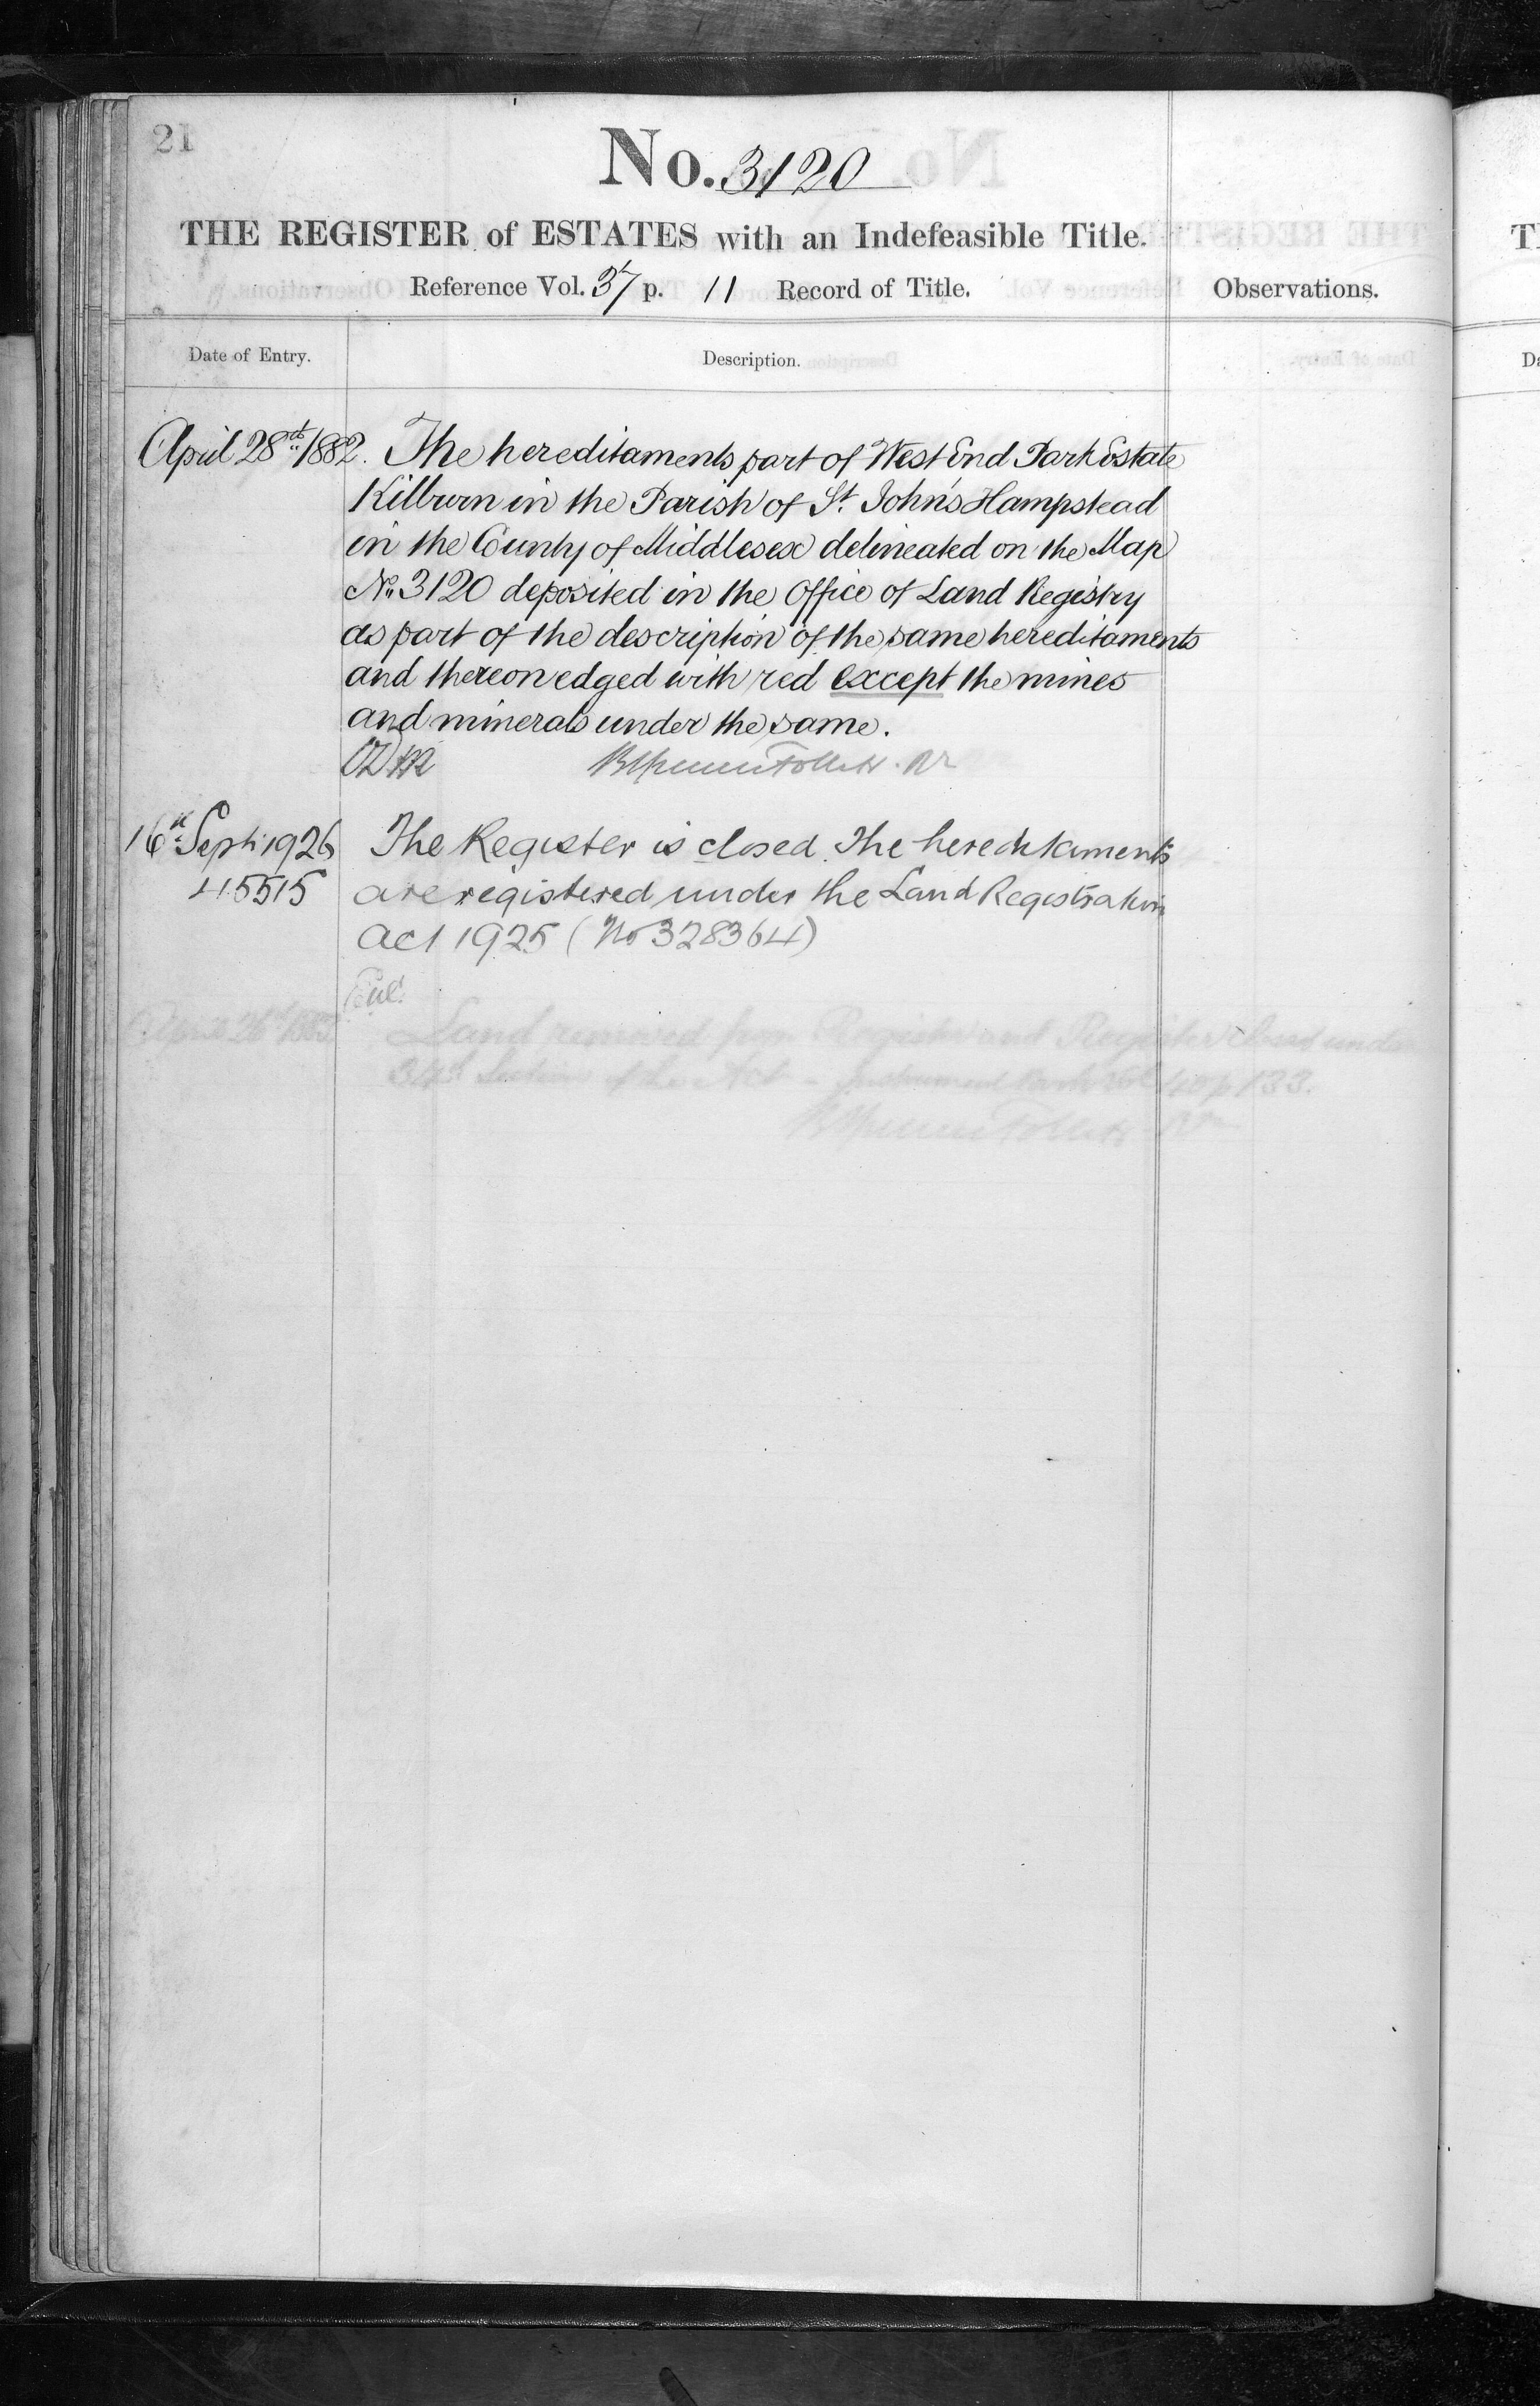 21
No. 3120
THE REGISTER of ESTATES with an Indefeasible Title.
Reference Vol. 37 p. 11 Record of Title.
Observations.
Date of Entry.
Description.
April 28th 1882. The hereditaments part of West End Park Estate
Kilburn in the Parish of St. John's Hampstead
in the County of Middlesex delineated on the Map
No. 3120 deposited in the Office of Land Registry
as part of the description of the same hereditaments
and thereon edged with red except the mines
and minerals under the same.
16th Sept. 1926 The Register is closed. The hereditaments
45515 are registered under the Land Registration
Act 1925 (No 328364)
Land removed from Register and Register closed under
34th Section of the Act - Instrument Book Vol 40 p 133.